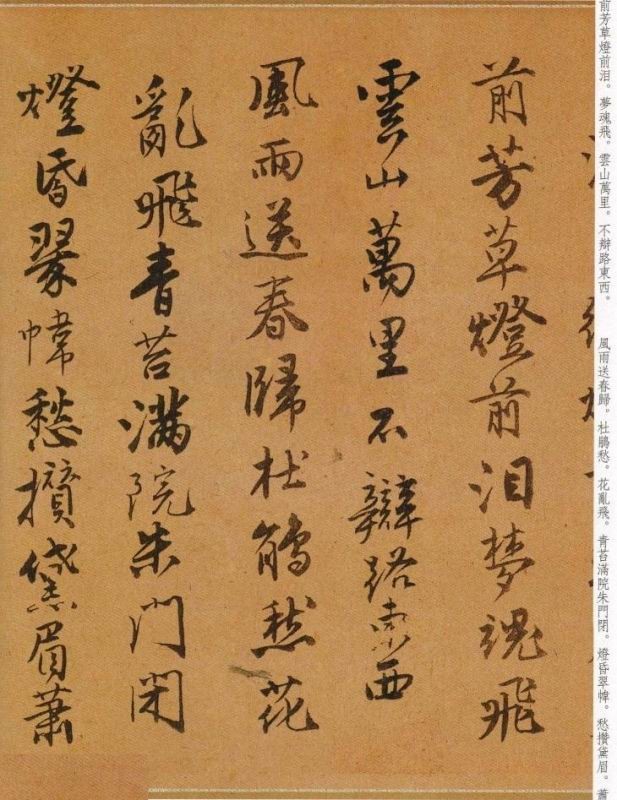 前芳草燈前泪。夢魂飛。雲山萬里。不辯路東西。　風雨送春歸。杜鵑愁。花亂飛。青苔滿院朱門閉。燈昏翠幃。愁攢黛眉。蕭
前芳草燈前泪夢魂飛
雲山萬里不辯路東西
風雨送春歸杜鵑愁花
亂飛青苔滿院朱門閉
燈昏翠幃愁攢黛眉蕭